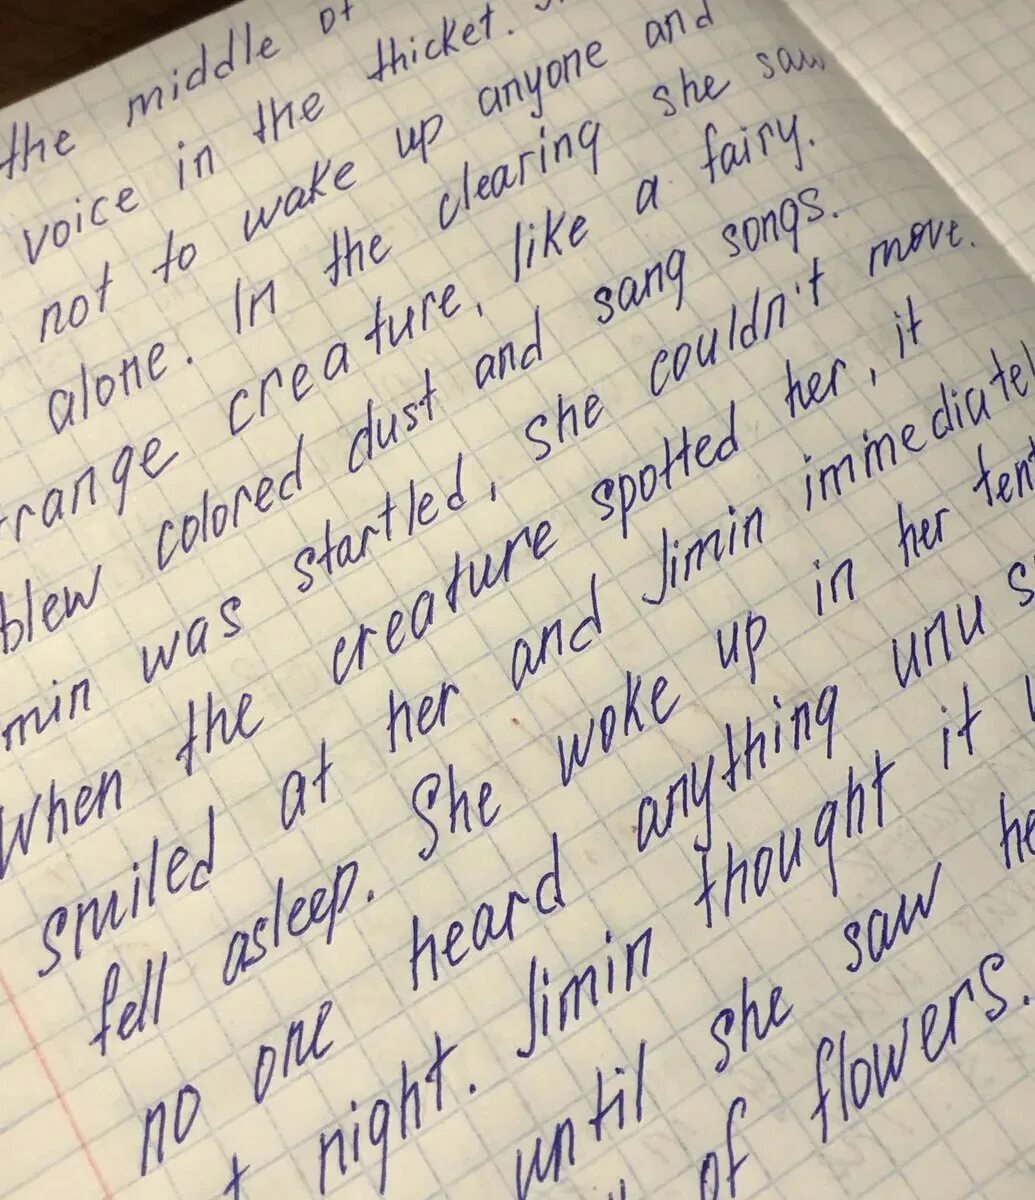 the middle of
voice in the thicket.
not to wake up anyone and
alone. In the clearing she saw
range creature, like a fairy.
blew colored dust and sang songs.
min was startled, she couldn't move.
When the creature spotted her, it
smiled at her and Jimin immediatel
fell asleep. She woke up in her tent
no one heard anything unus
night. Jimin thought it
until she saw he
of flowers.